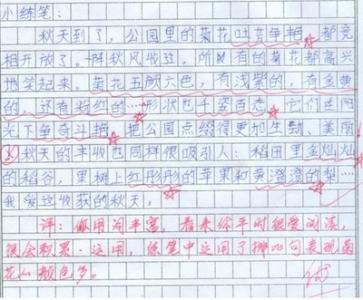 小练笔:
秋天到了,公园里的菊花吐芳争艳,都竞
相开放了。一阵秋风吹过,所有的菊花都高兴
地笑起来。菊花五颜六色,有浅紫的,有金黄
的,还有粉红的……形状也千姿百态,它们在阳
光下争奇斗艳,把公园点缀得更加生动、美丽
秋天的丰收也同样很吸引人:稻田里金灿灿
的稻谷,果树上红彤彤的苹果和黄澄澄的梨……
我爱这收获的秋天。
评:你用词丰富,看来你平时很爱阅读,
很会积累、运用,练笔中运用了排比句表现菊
花的颜色多。